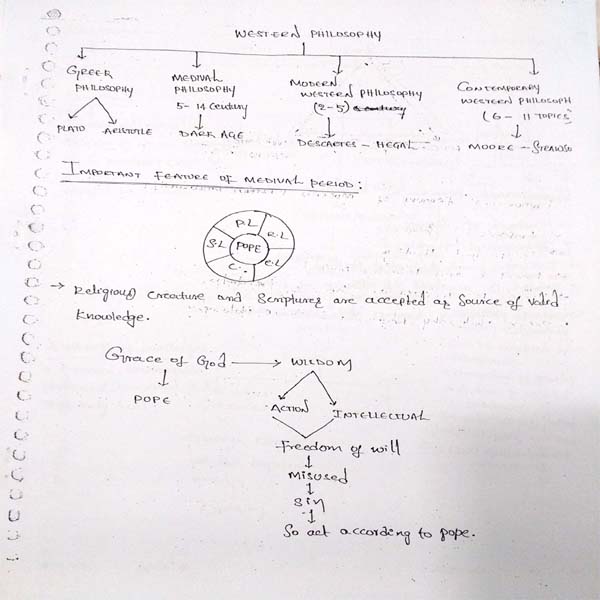 WESTERN PHILOSOPHY
GREEK
PHILOSOPHY
PLATO ARISTOTLE
MEDIVAL
PHILOSOPHY
5-14 century
DARK AGE
MODERN
WESTERN PHILOSOPHY
(2-5)
DESCARTES - HEGAL
CONTEMPORARY
WESTERN PHILOSOPH
(6-11 TOPICS)
MOORE - STRAWSO
IMPORTANT FEATURE OF MEDIVAL PERIOD:
P.L
R.L
S.L
POPE
C.
E.L
→ Religious creature and scriptures are accepted as source of valid
knowledge.
Grace of God → WISDOM
POPE
ACTION INTELLECTUAL
Freedom of will
Misused
Sin
So act according to pope.